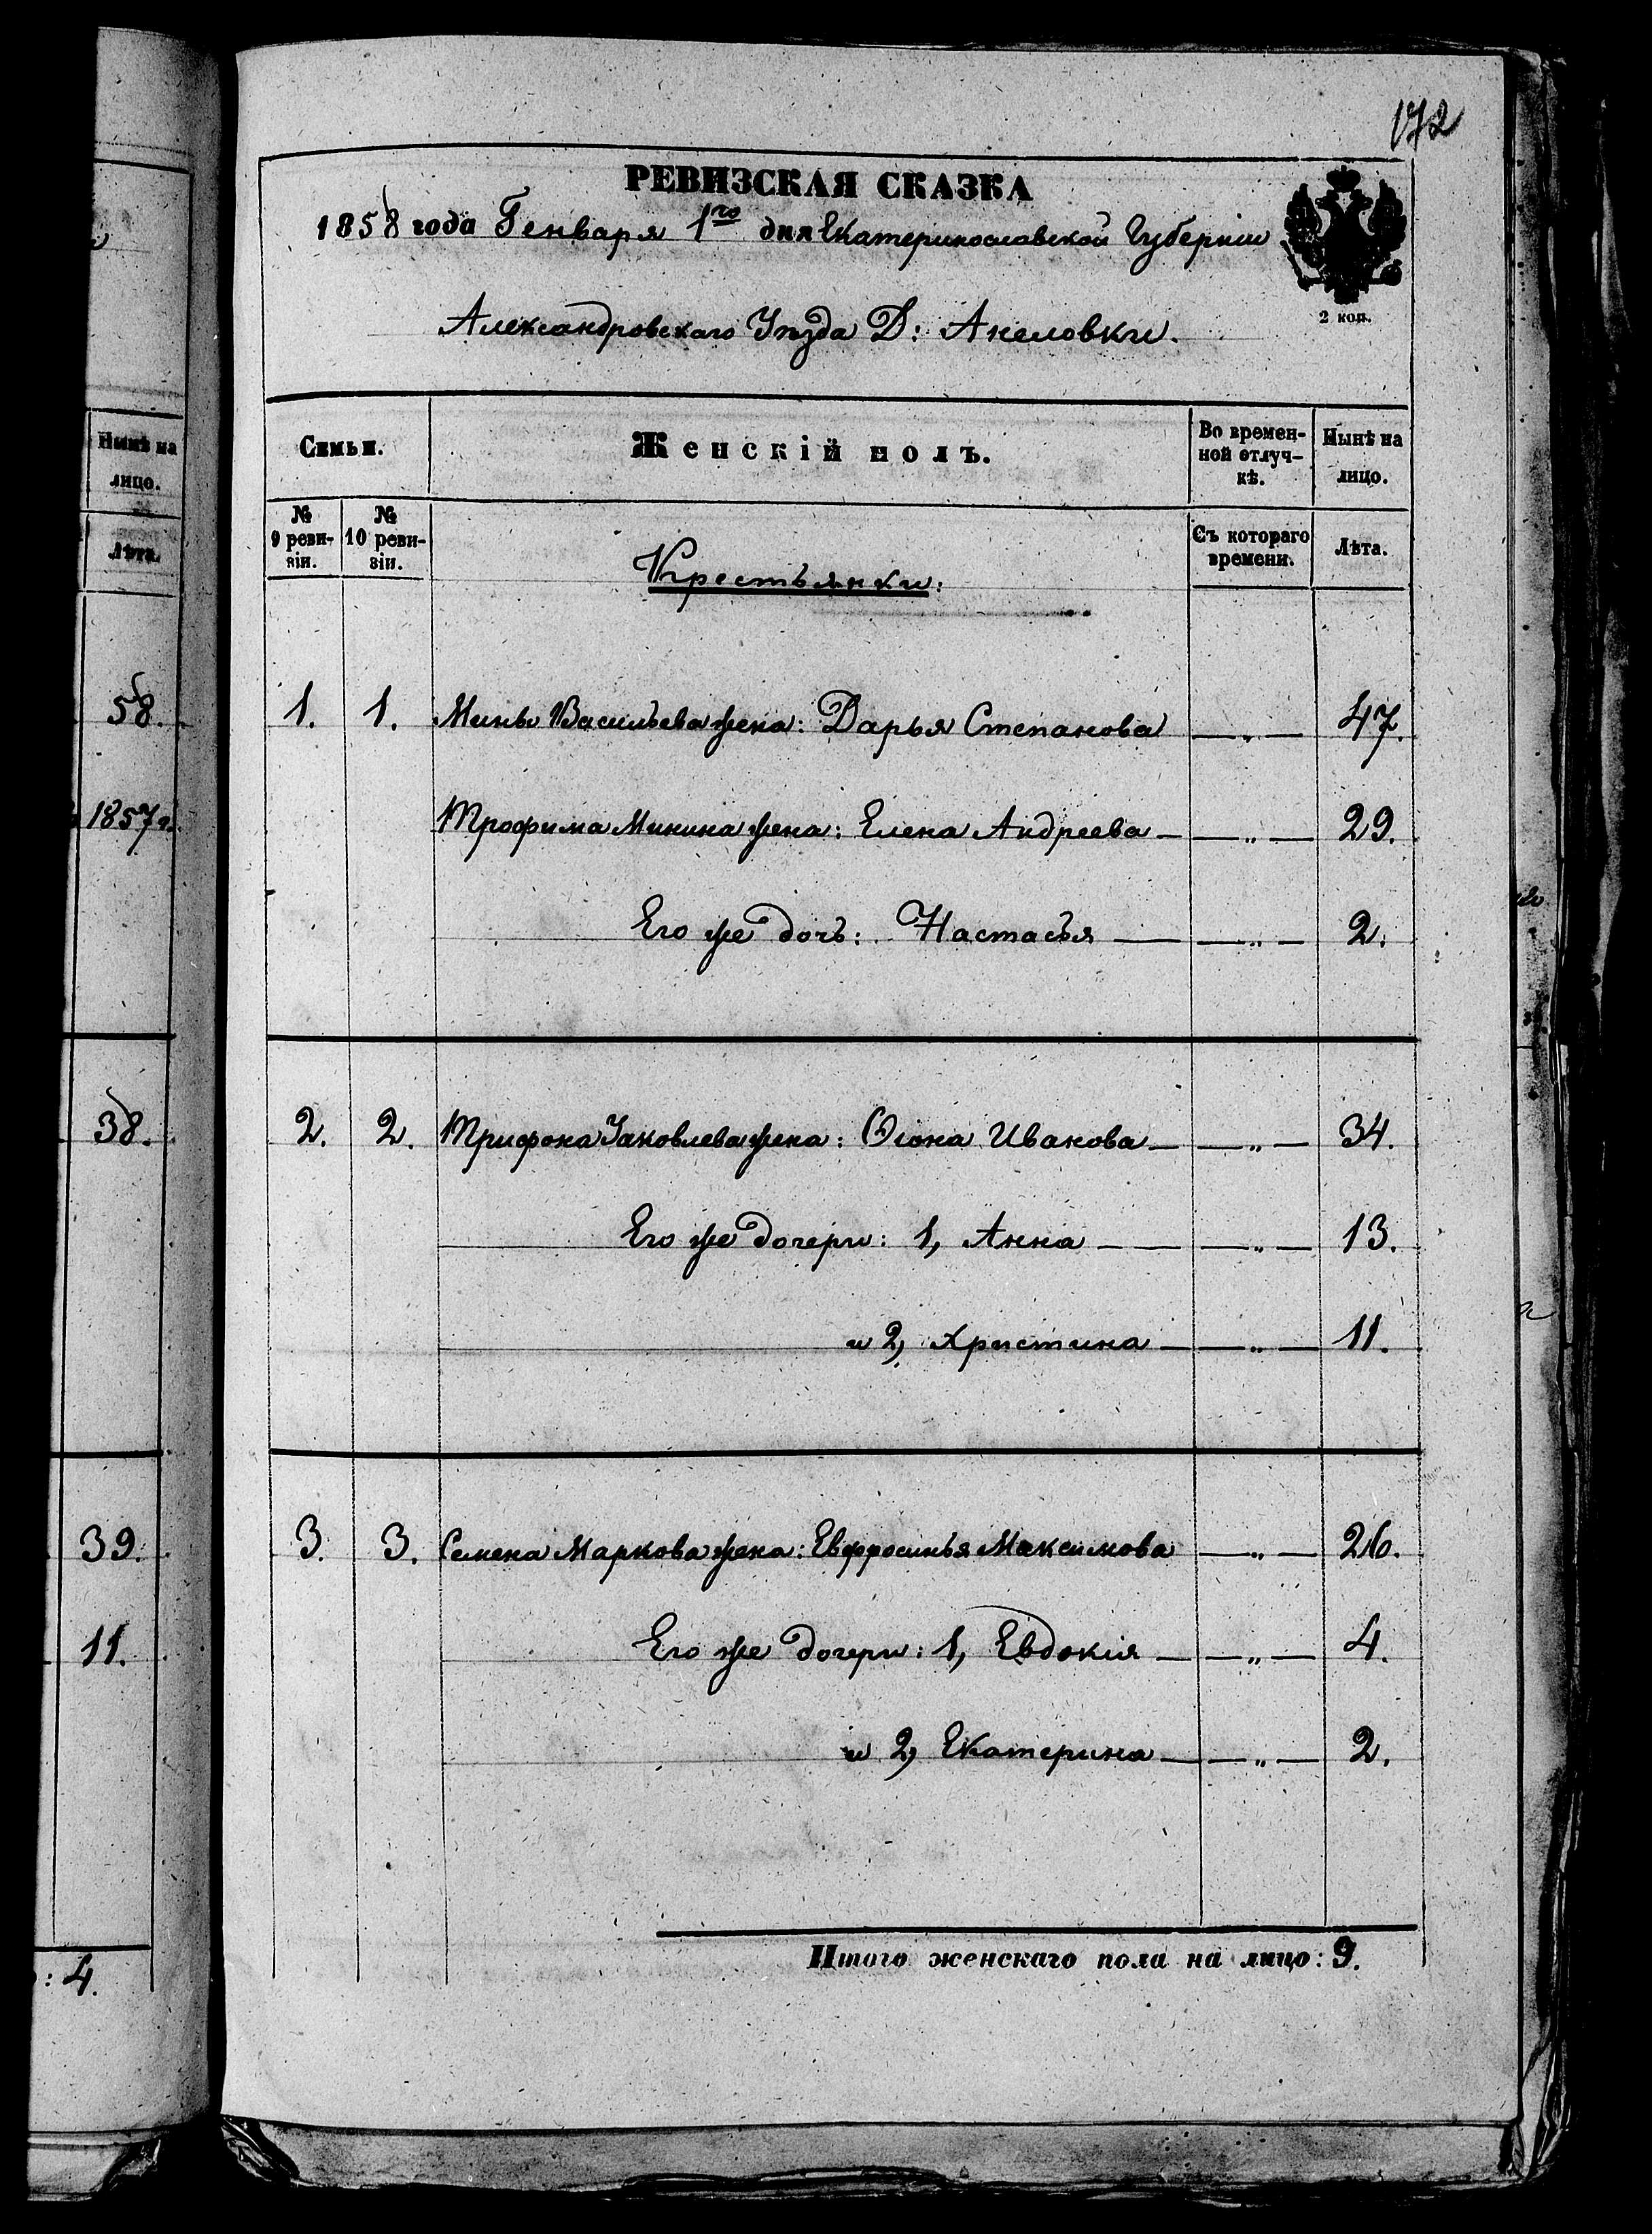 172
РЕВИЗСКАЯ СКАЗКА
1858 года Генваря 1го дня Екатеринославской Губерніи
Александровскаго Уѣзда Д: Анеловки.
2 коп.
Семьи. Женскій полъ. Во времен-ной отлуч-кѣ. Нынѣ на лицо.
№ 9 реви-зіи. № 10 реви-зіи. Съ котораго времени. Лѣта.
Крестьянки:
1. 1. Мины Васильева жена: Дарья Степанова — „ — 47.
Трофима Минина жена: Елена Андреева — — „ — 29.
Его же дочь: Настасья — — „ — 2.
2. 2. Трифона Яковлева жена: Ѳіона Иванова — — „ — 34.
Его же дочери: 1, Анна — — — „ — 13.
и 2, Христина — — „ — 11.
3. 3. Семена Маркова жена: Евфросинья Максимова — „ — 26.
Его же дочери: 1, Евдокія — — „ — 4.
и 2, Екатерина — — „ — 2.
Итого женскаго пола на лицо: 9.
Нынѣ на
лицо.
Лѣта.
58.
1857 г.
38.
39.
11.
: 4.